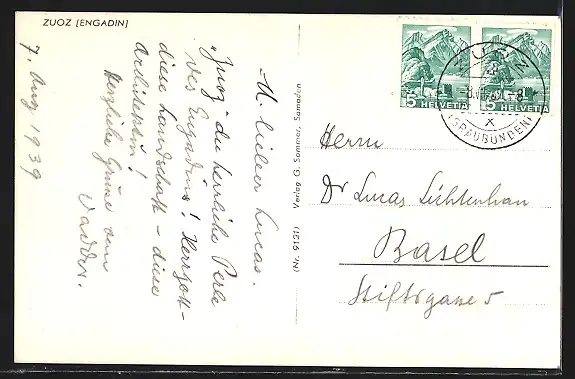 ZUOZ [ENGADIN]
7. Aug 1939
M. lieber Lucas.
"Zuoz" du herrliche Perle
des Engadins! Herrgott-
diese Landschaft - diese
Architektur!
Herzliche Grüsse dem
Verlag G. Sommer, Samaden
(Nr. 9151)
5 HELVETIA
5 HELVETIA
ZUOZ
(GRAUBÜNDEN)
Herrn
Dr Lucas Lichtenhan
Basel
Stiftsgasse 5